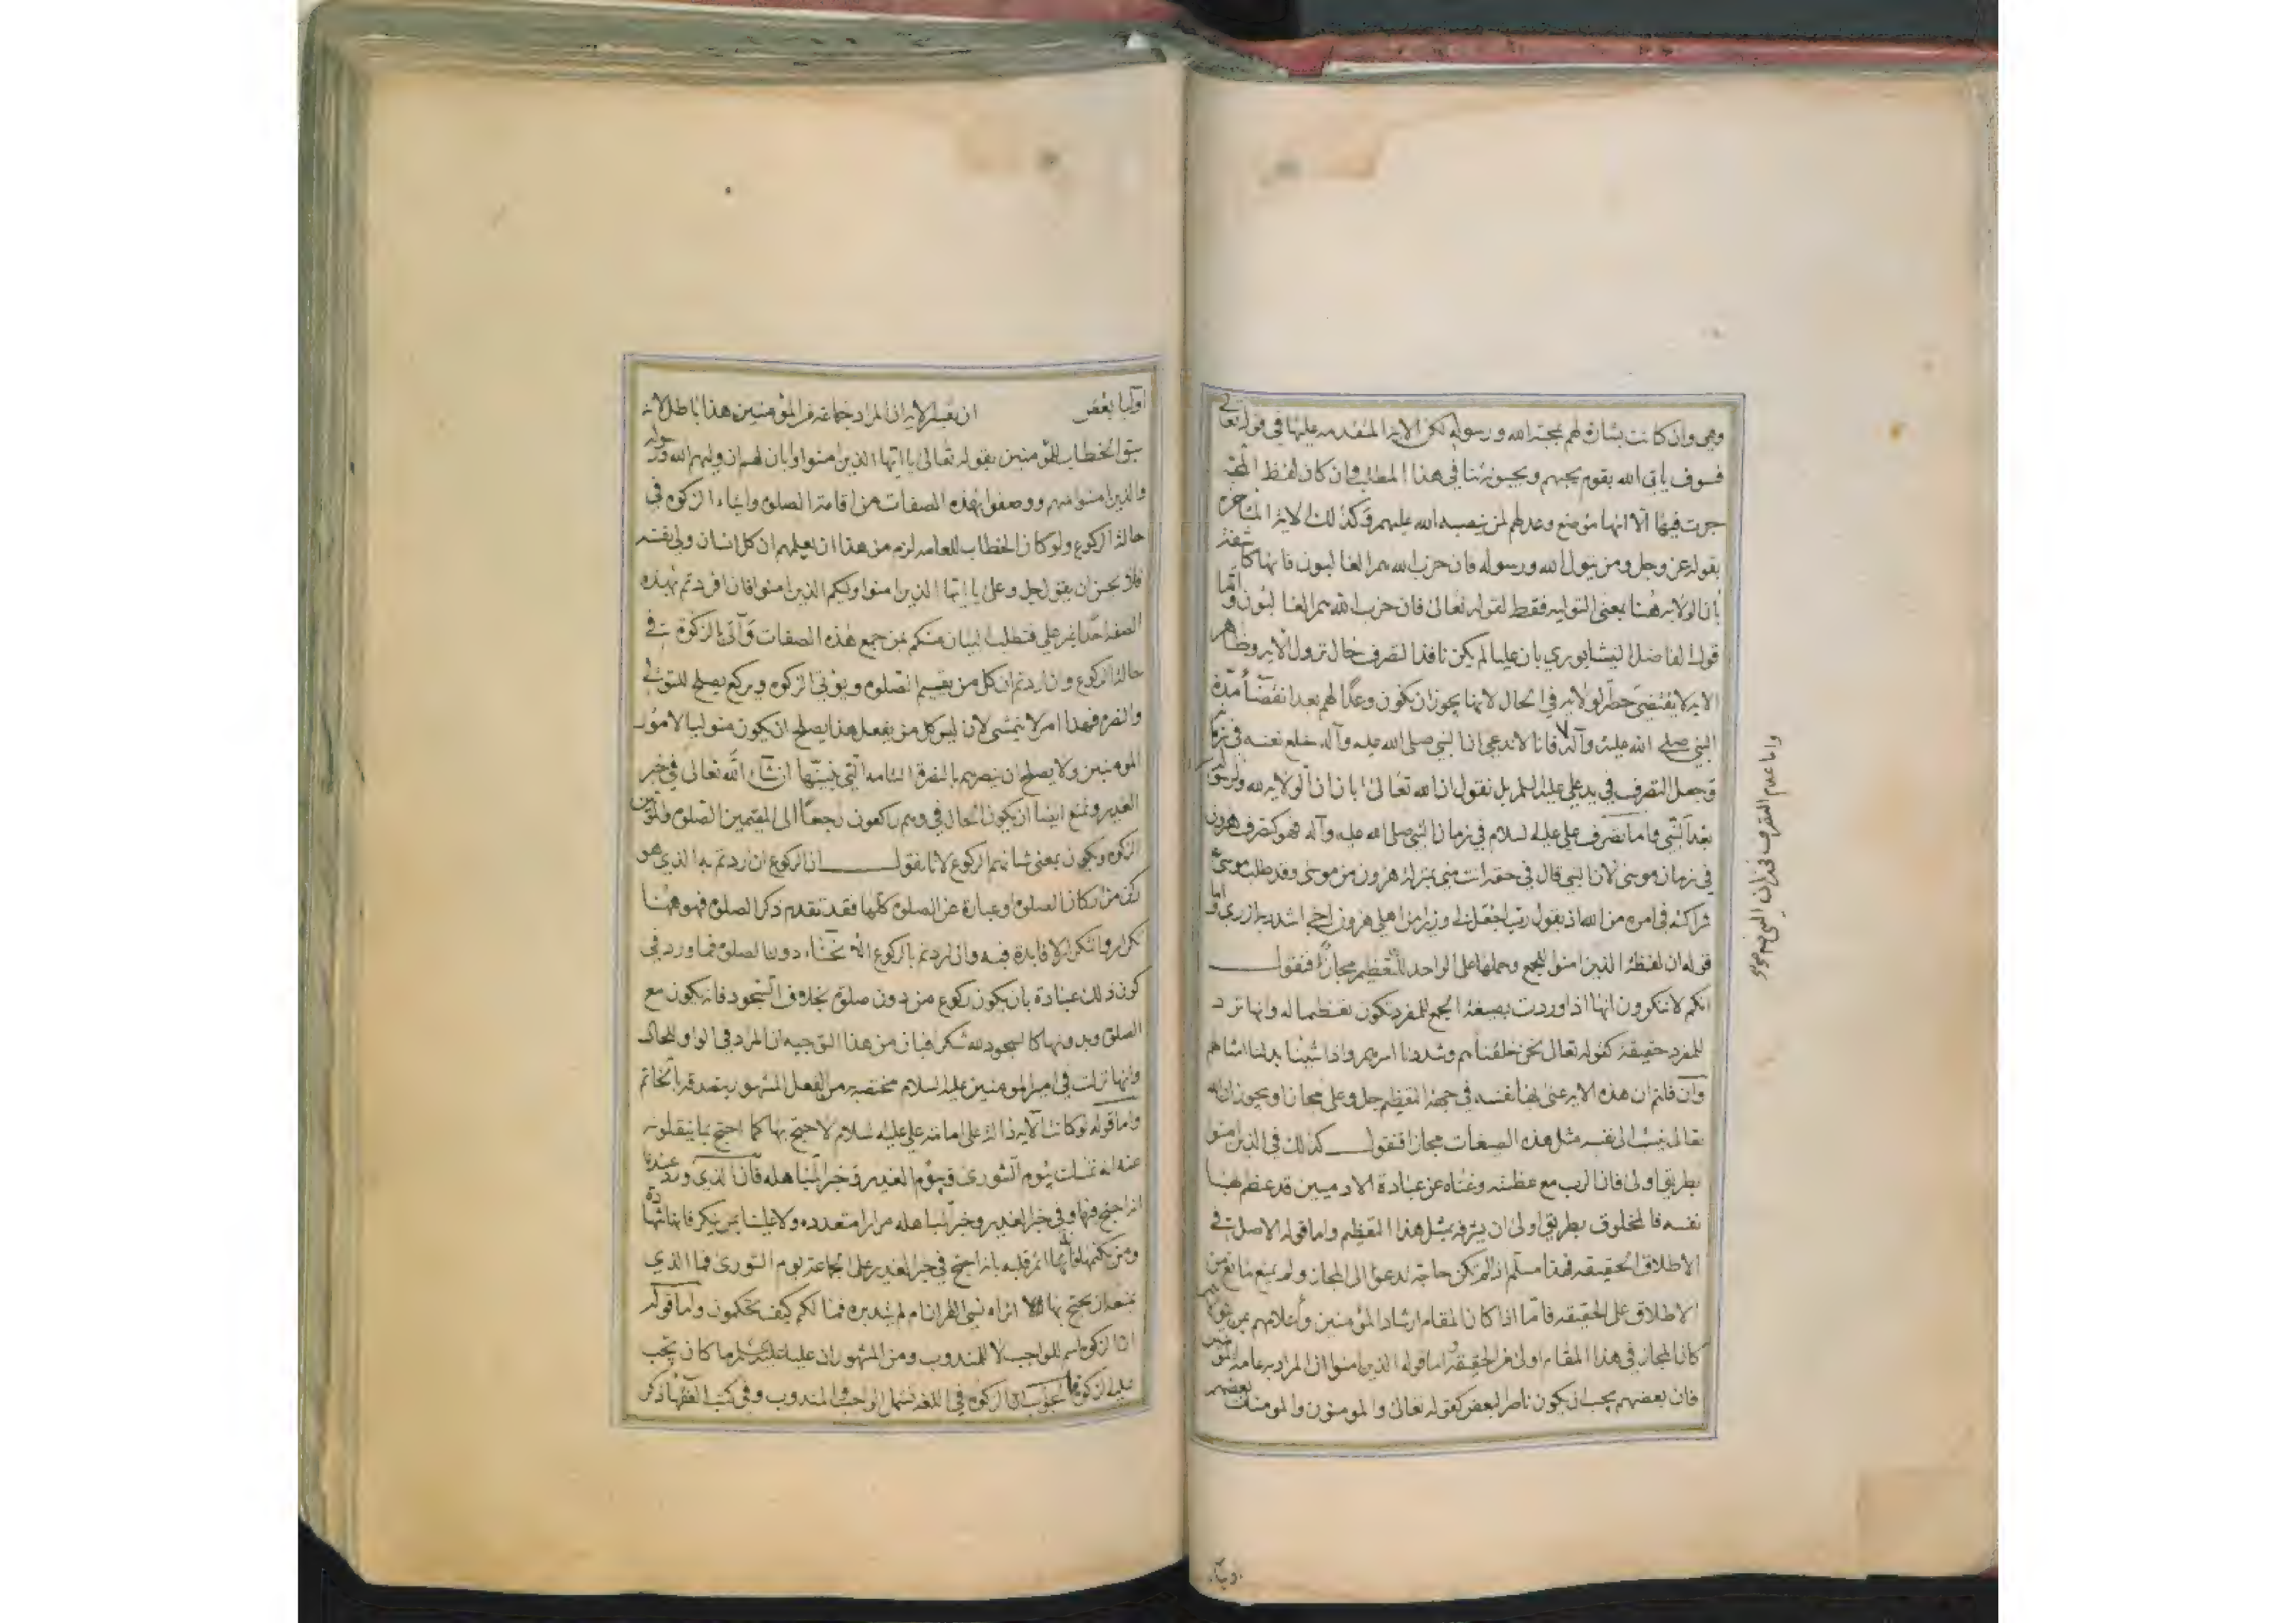 وهي وان كانت بشارة لهم بمحبة الله ورسوله لكن الاية المتقدمة عليها في قوله تعالى
فسوف ياتي الله بقوم يحبهم ويحبونه ثنا في هذا المطلب وان كان لفظ المحبة
جرت فيها الا انها مؤمنع وعد لهم لمن ينصبه الله عليهم وكذلك الاية المتاخرة
بقوله عز وجل ومن يتول الله ورسوله فان حزب الله هم الغالبون فانها كاشفة
بان الولاية هنا بمعنى التولية فقط لقوله تعالى فان حزب الله هم الغالبون واما
قول الفاضل النيشابوري بان عليا لم يكن نافذ التصرف حال نزول الاية وظاهر
الاية لا يقتضي حظر الولاية في الحال لانها يجوز ان يكون وعدا لهم بعد انقضاء مدة
النبي صلى الله عليه وآله فانا لا ندعي ان النبي صلى الله عليه وآله خلع نفسه في زمانه
وجعل التصرف في يد علي عليه السلام بل نقول ان الله تعالى ابان ان الولاية لله ولرسوله
بعد النبي واما تصرف علي عليه السلام في زمان النبي صلى الله عليه وآله فهو كتصرف هرون
في زمان موسى لان النبي قال في حقه انت مني بمنزلة هرون من موسى وقد طلب موسى
شراكته في امره من الله اذ يقول رب اجعل لي وزيرا من اهلي هرون اخي اشدد به ازري واما
قوله ان لفظة الذين امنوا للجمع وحملها على الواحد للتعظيم مجازا فنقول
انكم لا تنكرون انها اذا وردت بصيغة الجمع للمفرد تكون تعظيما له وانها ترد
للمفرد حقيقة كقوله تعالى نحن خلقناهم وشددنا اسرهم واذا شئنا بدلنا امثالهم
وان قلتم ان هذه الاية عنى بها نفسه في جهة التعظيم جل وعلى مجازا ويجوز ان الله
تعالى ينسب الى نفسه مثل هذه الصفات مجازا فنقول كذلك في الذين امنوا
بطريق اولى فان الرب مع عظمته وغناه عن عبادة الادميين قد عظم بها
نفسه فالمخلوق بطريق اولى ان يشرفه بمثل هذا التعظيم واما قوله الاصل في
الاطلاق الحقيقة فهذا مسلم اذا لم تكن حاجة تدعوا الى المجاز ولم يمنع مانع من
الاطلاق على الحقيقة فاما اذا كان المقام ارشاد المؤمنين واعلامهم بمن يتولاهم
كان المجاز في هذا المقام اولى من الحقيقة واما قوله الذين امنوا ان المراد به عامة المؤمنين
فان بعضهم يجب ان يكون ناصرا لبعض كقوله تعالى والمومنون والمومنات بعضهم
واما عدم التصرف في زمان النبي
اوليا بعض ان تفسير الاية ان المراد جماعة من المؤمنين هذا باطل لانه
سبق الخطاب للمؤمنين بقوله تعالى يا ايها الذين امنوا وابان لهم ان وليهم الله ورسوله
والذين امنوا منهم ووصفوا بهذه الصفات من اقامة الصلوة وايتاء الزكوة في
حالة الركوع ولو كان الخطاب للعامة لزم من هذا ان يعلمهم ان كل انسان ولي نفسه
فلا يحسن ان يقول جل وعلى يا ايها الذين امنوا وليكم الذين امنوا فان افردتم بهذه
الصفة احدا غير علي فنطلب البيان منكم بمن جمع هذه الصفات وآتى بالزكوة في
حالة الركوع وان اردتم ان كل من يقيم الصلوة ويؤتي الزكوة ويركع يصلح للتولي
والنصرة فهذا امر لا يتمشى لان ليس كل من يفعل هذا يصلح ان يكون متوليا لامور
المومنين ولا يصلح ان ينصرهم بالنصرة التامة التي نبينها ان شاء الله تعالى في خبر
الغدير ونمنع ايضا ان يكون الحال في وهم راكعون راجعا الى المقيمين الصلوة والمؤتين
الزكوة ويكون بمعنى شانهم الركوع لانا نقول ان الركوع ان اردتم به الذي هو
ركن من اركان الصلوة او عبارة عن الصلوة كلها فقد تقدم ذكر الصلوة فهو ههنا
تكرار والتكرار لا فايدة فيه وان اردتم بالركوع الانحناء دون الصلوة فما ورد في
كون ذلك عبادة بان يكون ركوع من دون صلوة بخلاف السجود فانه يكون مع
الصلوة وبدونها كالسجود لله شكرا فبان من هذا التوجيه ان المراد في الواو للحال
وانها نزلت في امير المومنين عليه السلام مختصة من الفعل المشهور بتصدقه بالخاتم
واما قوله لو كانت الاية دالة على امامة علي عليه السلام لاحتج بها كما احتج بما ينقلونه
عنه انه تمسك يوم الشورى ويوم الغدير وخبر المباهلة فان الذي ورد عندنا
انه احتج فيها وفي خبر الغدير وخبر المباهلة مرارا متعددة ولا علينا بمن ينكر فانها شهادة
ومن يكتمها فانه اثم قلبه بانه احتج في خبر الغدير على الجماعة يوم الشورى فما الذي
يمنعه ان يحتج بها الا انراه نسي القران ام لم يتدبره فما لكم كيف تحكمون واما قوله
ان الزكوة اسم للواجب لا للمندوب ومن المشهور ان عليا عليه السلام ما كان يجب
عليه الزكوة فالجواب ان الزكوة في اللغة تشمل الواجب والمندوب وفي كتب الفقهاء ذكر